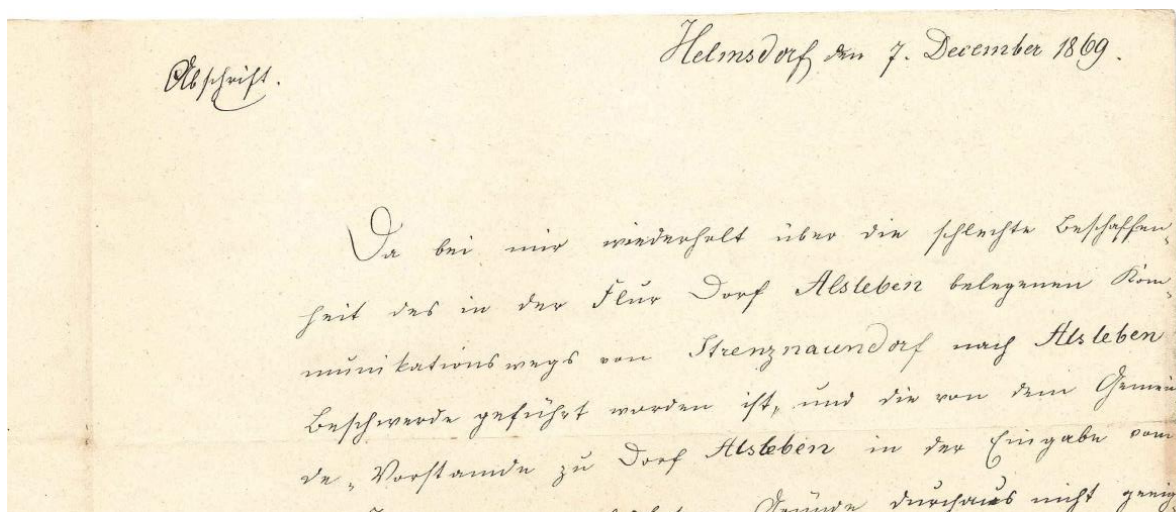 Abschrift.
Helmsdorf den 7. December 1869.
Da bei mir wiederholt über die schlechte Beschaffen-
heit des in der Flur Dorf Alsleben belegenen Kom-
munikationswegs von Strenznaundorf nach Alsleben
Beschwerde geführt worden ist, und die von dem Gemein
de-Vorstande zu Dorf Alsleben in der Eingabe vom
Gründe durchaus nicht geeig